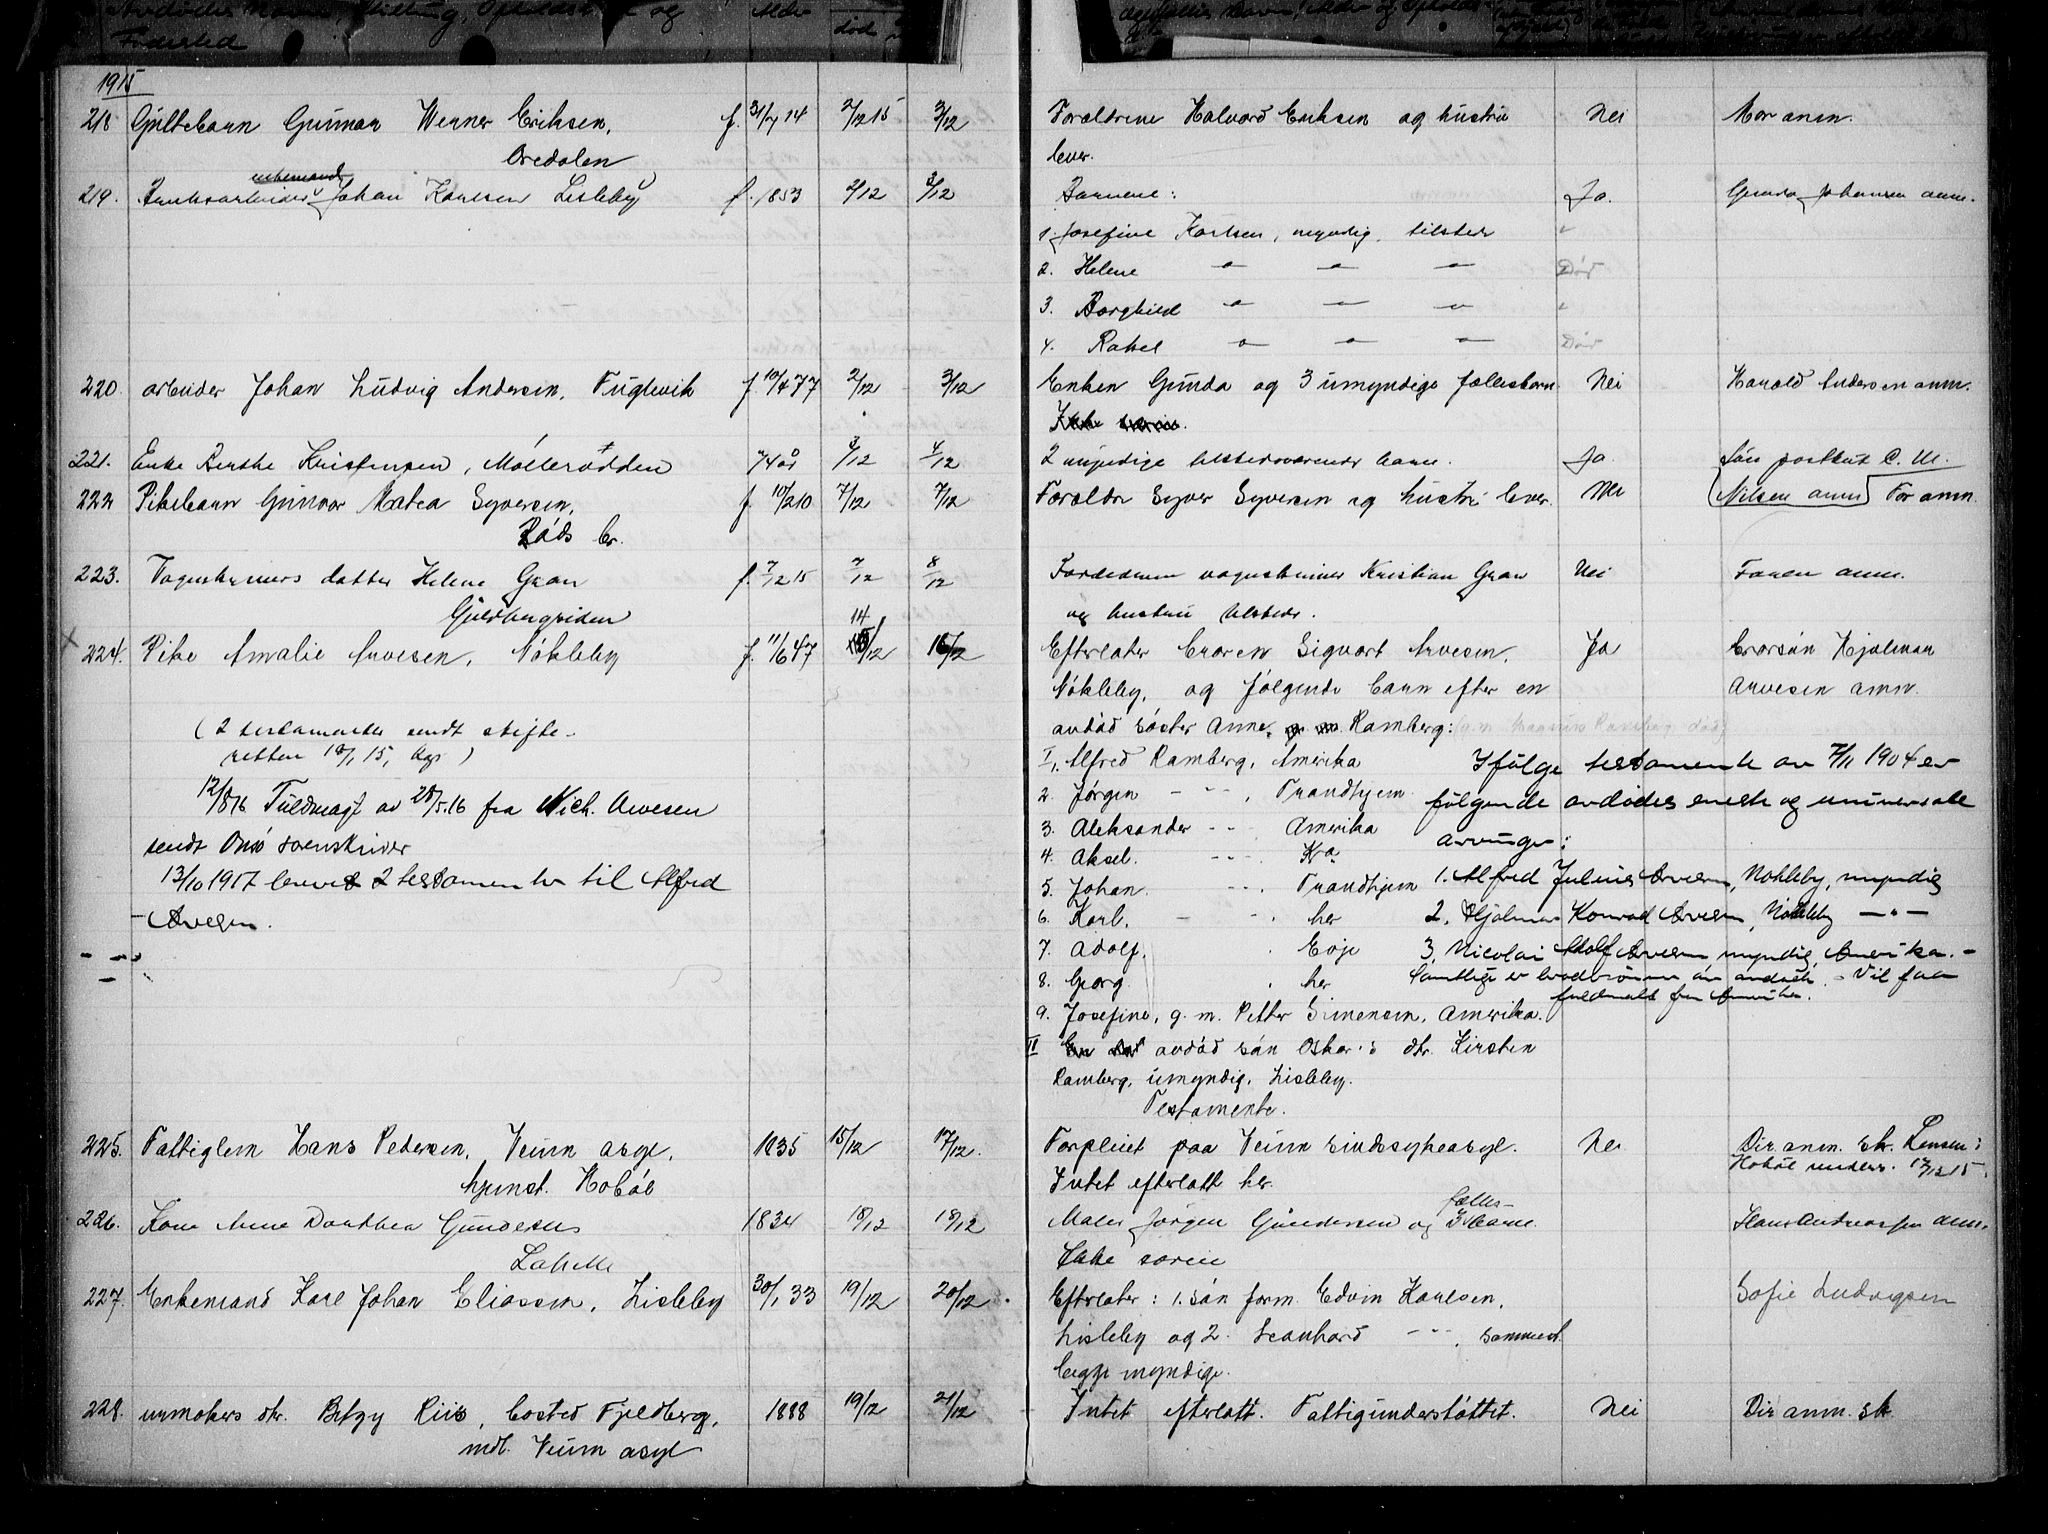 1915
218 Guttebarn Gunnar Werner Eriksen, f. 31/7 14 2/12 15 3/12 Forældrene Halvard Eriksen og hustru Nei Mor anm.
Oredalen lever.
enkemand
219. Bruksarbeider Johan Karlsen Lisleby f. 1853 2/12 3/12 Barnene: Ja. Gunda Johansen anm.
1. Josefine Karlsen, myndig, tilstede
2. Helene " " " Død
3. Borghild " — "
4. Rakel " " — Død
220. arbeider Johan Ludvig Andersen, Fuglevik f. 10/4 77 2/12 3/12 Enken Gunda og 3 umyndige fællesbarn. Nei Harald Andersen anm.
221. Enke Berthe Kristensen, Mölleródden 74 år 3/12 4/12 2 myndige tilstedeværende barn. Ja. Sön postbud C. M.
222 Pikebarn Gunvor Matea Syversen, f. 10/2 10 7/12 7/12 Forældre Syver Syversen og hustru lever. Nei Nilsen anm Far anm.
Råds br.
223. Vognskriners datter Helene Gran f. 7/12 15 7/12 8/12 Forældrene vognskriner Kristian Gran Nei Faren anm.
Gjeldbergsiden og hustru tilstede.
14
224. Pike Amalie Arvesen, Nökleby f. 11/6 47 /12 16/12 Efterlater broren Sigvart Arvesen, Ja Brorsön Hjalmar
Nökleby, og følgende barn efter en Arvesen anm.
avdød søster Anne Ramberg:
(2 testamenter sendt skifte-
retten 18/1 15, )
I 1. Alfred Ramberg, Amerika Ifölge testamente av 7/11 1904 er
2. Jørgen — " —, Trondhjem følgende avdødes eneste og universale
12/8 16 Fuldmagt av 28/5.16 fra Nich. Arvesen
3. Aleksander - - Amerika arvinger:
sendt Onsö sorenskriver
4. Aksel. - - - Kra
13/10 1917 levert 2 testamenter til Alfred
5. Johan. - - . Trondhjem 1. Alfred Julius Arvesen, Nökleby, myndig
Arvesen.
6. Karl. - - . her 2. Hjalmar Konrad Arvesen, Nökleby — " —
7. Adolf. Eoje 3. Nicolai Adolf Arvesen myndig, Amerika. -
8. Georg. her Samtlige er brodersønner av avdøde. - Vil faa
fuldmakt fra Amerika.
9. Josefine, g. m. Petter Simensen, Amerika.
II avdød sön Oskar's dtr. Kirsten
Ramberg, umyndig, Lisleby.
Testamente.
225. Fattiglem Hans Pedersen, Veum asyl, 1835 15/12 17/12. Forpleiet paa Veum sindssykeasyl. Nei Dir anm. sk. Lensm. i
hjemst. Hobøl Intet efterlatt her. Hobøl underr. 17/12 15.
226. Kone Anne Dorthea Gundersen 1834 18/12 18/12 Maler Jørgen Gundersen og fælles- 3 barn. Hans Andreassen anm.
Lahelle Ikke sorin
227. Enkemand Karl Johan Eliassen, Lisleby 30/1 33 19/12 20/12. Efterlater: 1. sön form. Edvin Karlsen, Sofie Ludvigsen
Lisleby og 2. Leonhard — " —, sammest.
begge myndige.
228. urmakers dtr. Betzy Riis, bosted Fjeldberg, 1888 19/12 21/12 Intet efterlatt. Fattigunderstøttet. Nei Dir anm. sk.
mdl. Veum asyl